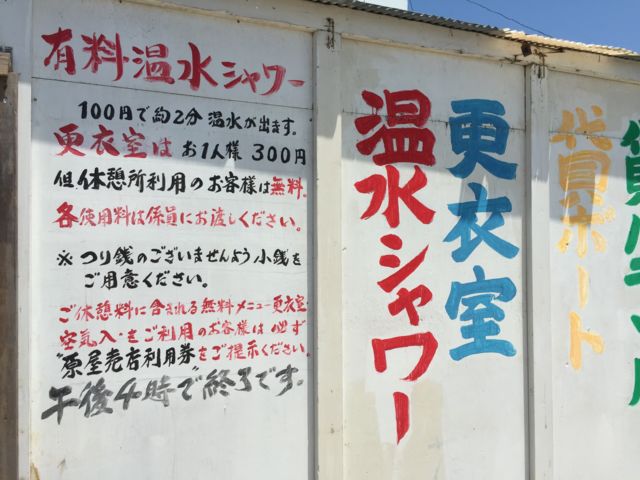 有料温水シャワー
100円で約2分温水が出ます。
更衣室はお1人様300円
但休憩所利用のお客様は無料。
各使用料は係員にお渡しください。
※つり銭のございませんよう小銭を
ご用意ください。
ご休憩料に含まれる無料メニュー更衣室・
空気入・をご利用のお客様は必ず
"原屋売店利用券をご提示ください。
午後4時で終了です。
温水シャワー
更衣室
貸ボート